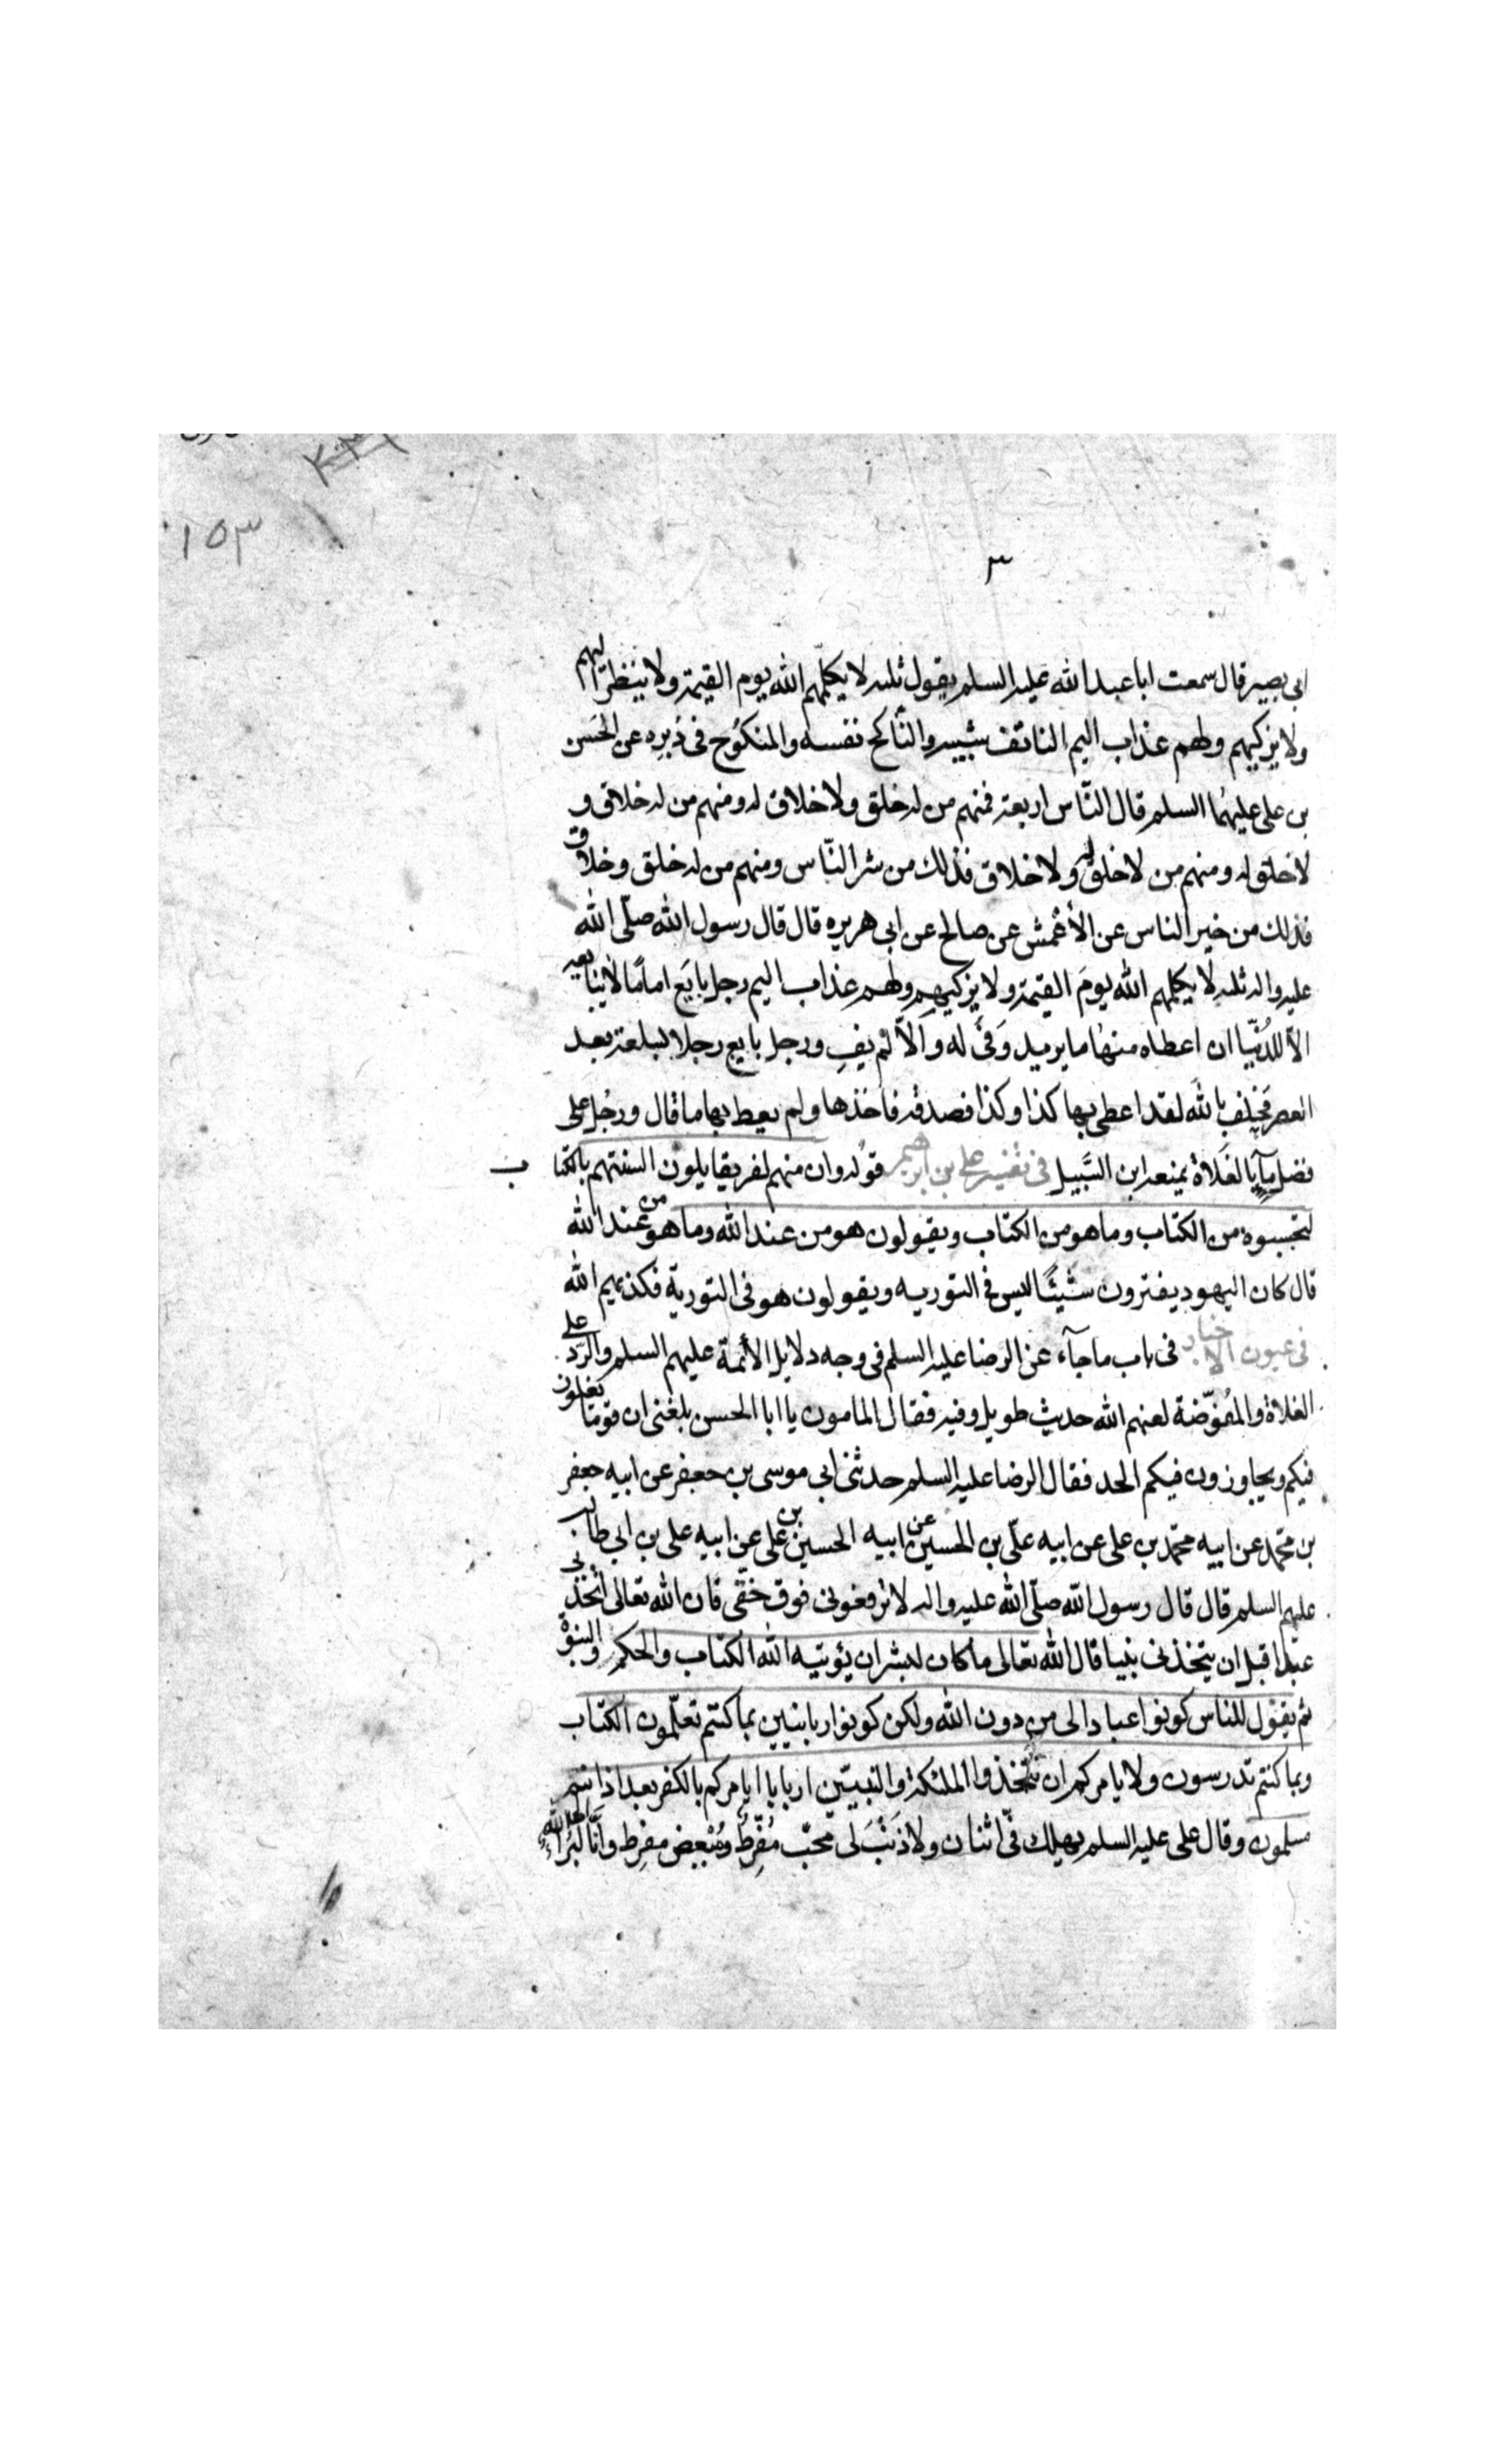 ١٥٣
٣
ابى بصير قال سمعت ابا عبد الله عليه السلم يقول ثلثه لا يكلّمهم الله يوم القيمة ولا ينظر اليهم
ولا يزكيهم ولهم عذاب اليم الناتف شيبه والنّاكح نفسه والمنكوُح فى دُبرِه عن الحَسن
بن على عليهمُا السلم قال النّاس اربعة فمنهم من له خلق ولا خلاق له ومنهم من له خلاق و
لا خلق له ومنهم من لا خلق له ولا خلاق فذلك من شر النّاس ومنهم من له خلق وخلاق
فذلك من خير الناس عن الأعْمش عن صالح عن ابى هريره قال قال رسول الله صلّى الله
عليه واله ثلثه لا يكلمهم الله يومَ القيمة ولا يزكيهِم ولهم عذاب اليم رجل بايَع امامًا لا يبايعه
الّا للدُنّيا ان اعطاه منهٰا ما يريد وَفىٰ له والّا لم يفِ ورجل بايع رجلا بسلعة بعد
العصر فحَلف بالله لقد اعطى بها كذا وكذا فصدقه فاخذها ولم يعط بها ما قال ورجُل على
فضل مآءٍ بالفَلاة يمنعه ابن السَّبيل فى تفسير على بن ابرهيم قوُله وان منهم لفريقا يلون السنتهم بالكتاب
لتحسبوه من الكتاب وما هو من الكتاب ويقولون هو من عند الله وما هو من عند الله
قال كان اليهود يفترون شيئًا ليس فى التوريه ويقولون هو فى التورية فكذبهم الله
فى عيون الاخبار فى باب ما جآء عن الرضا عليه السلم فى وجه دلايل الأئمة عليهم السلم والرّد على
الغلاة والمُفوّضة لعنهم الله حديث طويل وفيه فقال المامون يا ابا الحسن بلغنى ان قومًا يغلون
فيكم ويجاوزون فيكم الحد فقال الرضا عليه السلم حدثنى ابى موسى بن جعفر عن ابيه جعفر
بن محمّد عن ابيه محمّد بن على عن ابيه علّى بن الحسين عن ابيه الحسين بن على عن ابيه على بن ابى طالب
عليهم السلم قال قال رسول الله صلّى الله عليه واله لا ترفعونى فوق حقّى فان الله تعالى اتخذنى
عبدا قبل ان يتخذنى نبيا قال الله تعالى ما كان لبشر ان يؤتيه الله الكتاب والحكم والنبوة
ثم يقوُل للناس كونوا عبادا لى من دون الله ولكن كونوا ربانيين بما كنتم تعلّمون الكتاب
وبما كنتم تدرسون ولا يامركم ان تتّخذوا الملئكة والنبيّين اربابا ايامركم بالكفر بعد اذ انتم
مسلمون وقال على عليه السلم يهلك فىّ اثنان ولا ذَنْبَ لى محبّ مُفْرِطُ ومُبْغِض مفرِط وانّا لَبُرَاء الى الله